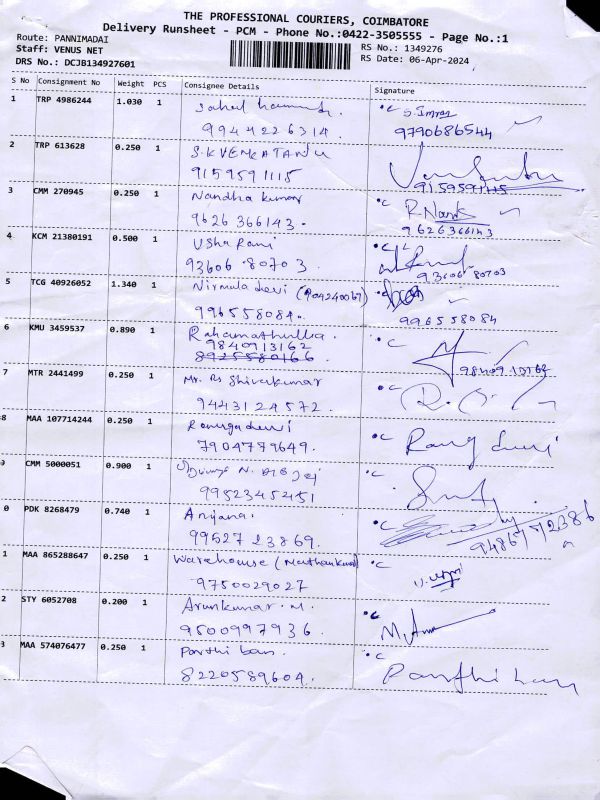 THE PROFESSIONAL COURIERS, COIMBATORE
Delivery Runsheet - PCM - Phone No.:0422-3505555 - Page No.:1
Route: PANNIMADAI
Staff: VENUS NET
DRS No.: DCJB134927601
RS No.: 1349276
RS Date: 06-Apr-2024
S No Consignment No Weight PCS Consignee Details Signature
1 TRP 4986244 1.030 1
9944226314. 9790686544
2 TRP 613628 0.250 1 S.K VENKATANU
9159591115 9159591115
3 CMM 270945 0.250 1 Nandha kumar R.Nand
9626 366143. 9626366143
4 KCM 21380191 0.500 1 Usha Rani
93606 80703. 93606 80703
5 TCG 40926052 1.340 1 Nirmula devi
996558084. 996558084
6 KMU 3459537 0.890 1 Rahamathulla.
9840913162 9840913162
8925580166.
7 MTR 2441499 0.250 1 Mr. Rs Shivakumar
9443124572.
8 MAA 107714244 0.250 1 Ranugadevi Rang devi
7904779649.
CMM 5000051 0.900 1
9952345451
0 PDK 8268479 0.740 1 Anjana.
99527 23869.
1 MAA 865288647 0.250 1 Warehouse
9750029027
2 STY 6052708 0.200 1 Arunkumar. M.
9500997936.
3 MAA 574076477 0.250 1 Parthi ban. Parthiban
8220589604.